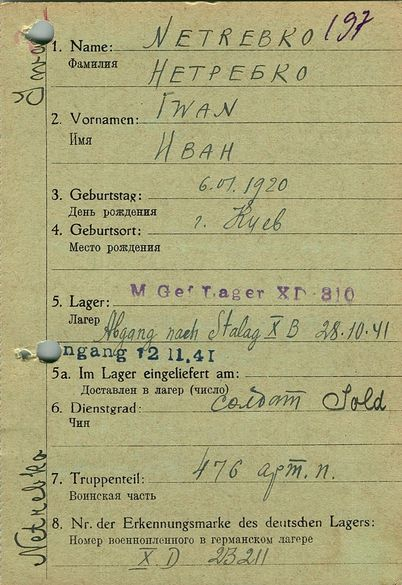 1. Name: NETREBKO 197
Фамилия НЕТРЕБКО
2. Vornamen: IWAN
Имя ИВАН
3. Geburtstag: 6.01.1920
День рождения
4. Geburtsort: г. Киев
Место рождения
5. Lager: M Gef Lager XD 310
Лагер Abgang nach Stalag X B 28.10.41
ngang 12 11.41
5a. Im Lager eingeliefert am:
Доставлен в лагер (число)
6. Dienstgrad: солдат Sold
Чин
7. Truppenteil: 476 арт. п.
Воинская часть
8. Nr. der Erkennungsmarke des deutschen Lagers:
Номер военнопленного в германском лагере
X D 23211
Netrebko